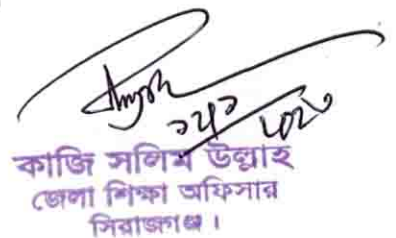 কাজি সলিম উল্লাহ
জেলা শিক্ষা অফিসার
সিরাজগঞ্জ।